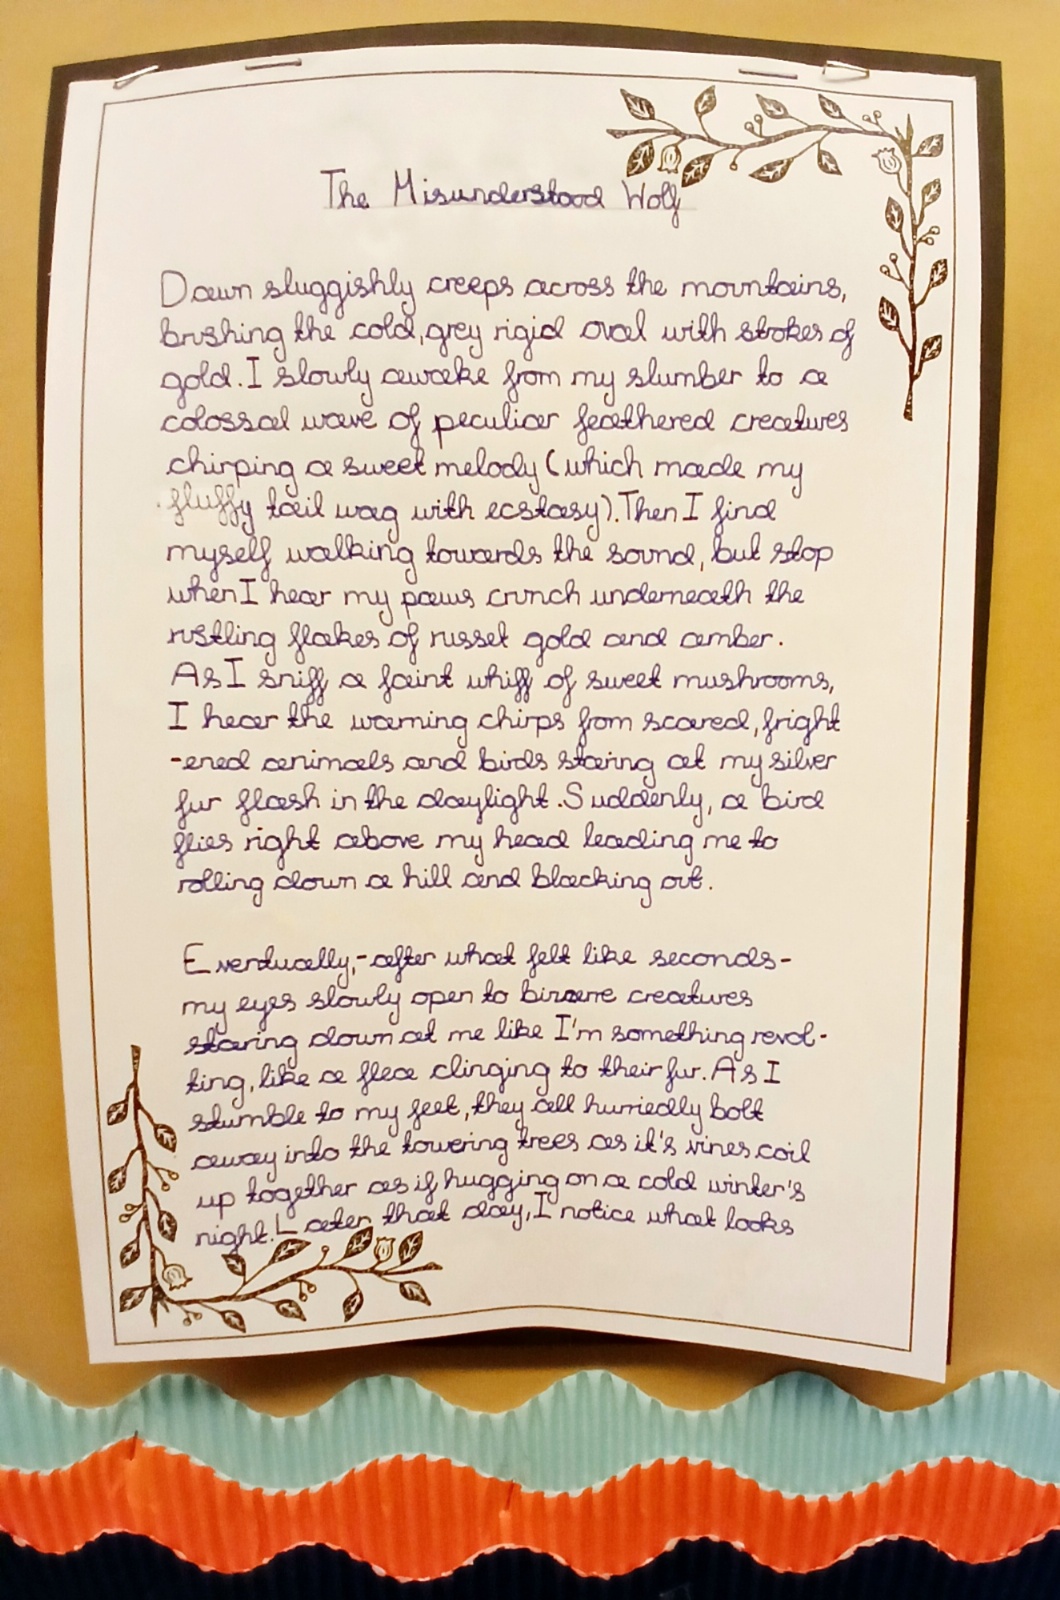 The Misunderstood Wolf
Dawn sluggishly creeps across the mountains,
brushing the cold, grey rigid oval with strokes of
gold. I slowly awake from my slumber to a
colossal wave of peculiar feathered creatures
chirping a sweet melody (which made my
fluffy tail wag with ecstasy). Then I find
myself walking towards the sound, but stop
when I hear my paws crunch underneath the
rustling flakes of russet gold and amber.
As I sniff a faint whiff of sweet mushrooms,
I hear the warning chirps from scared, fright
-ened animals and birds staring at my silver
fur flash in the daylight. Suddenly, a bird
flies right above my head leading me to
rolling down a hill and blacking out.
Eventually,-after what felt like seconds-
my eyes slowly open to bizarre creatures
staring down at me like I'm something revol-
ting, like a flea clinging to their fur. As I
stumble to my feet, they all hurriedly bolt
away into the towering trees as it's vines coil
up together as if hugging on a cold winter's
night. Later that day, I notice what looks